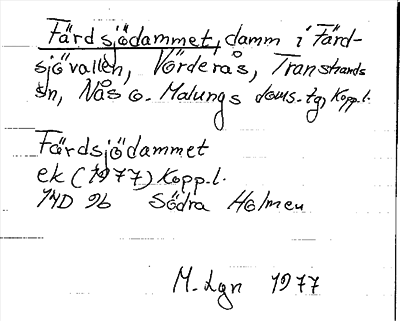 Färdsjödammet, damm i Färd-
sjövallen, Vörderås, Transtrands
sn, Nås o. Malungs doms.tg, Kopp.l.
Färdsjödammet
ek (1977) Kopp.l.
14D 9b Södra Holmen
M. Lgn 1977